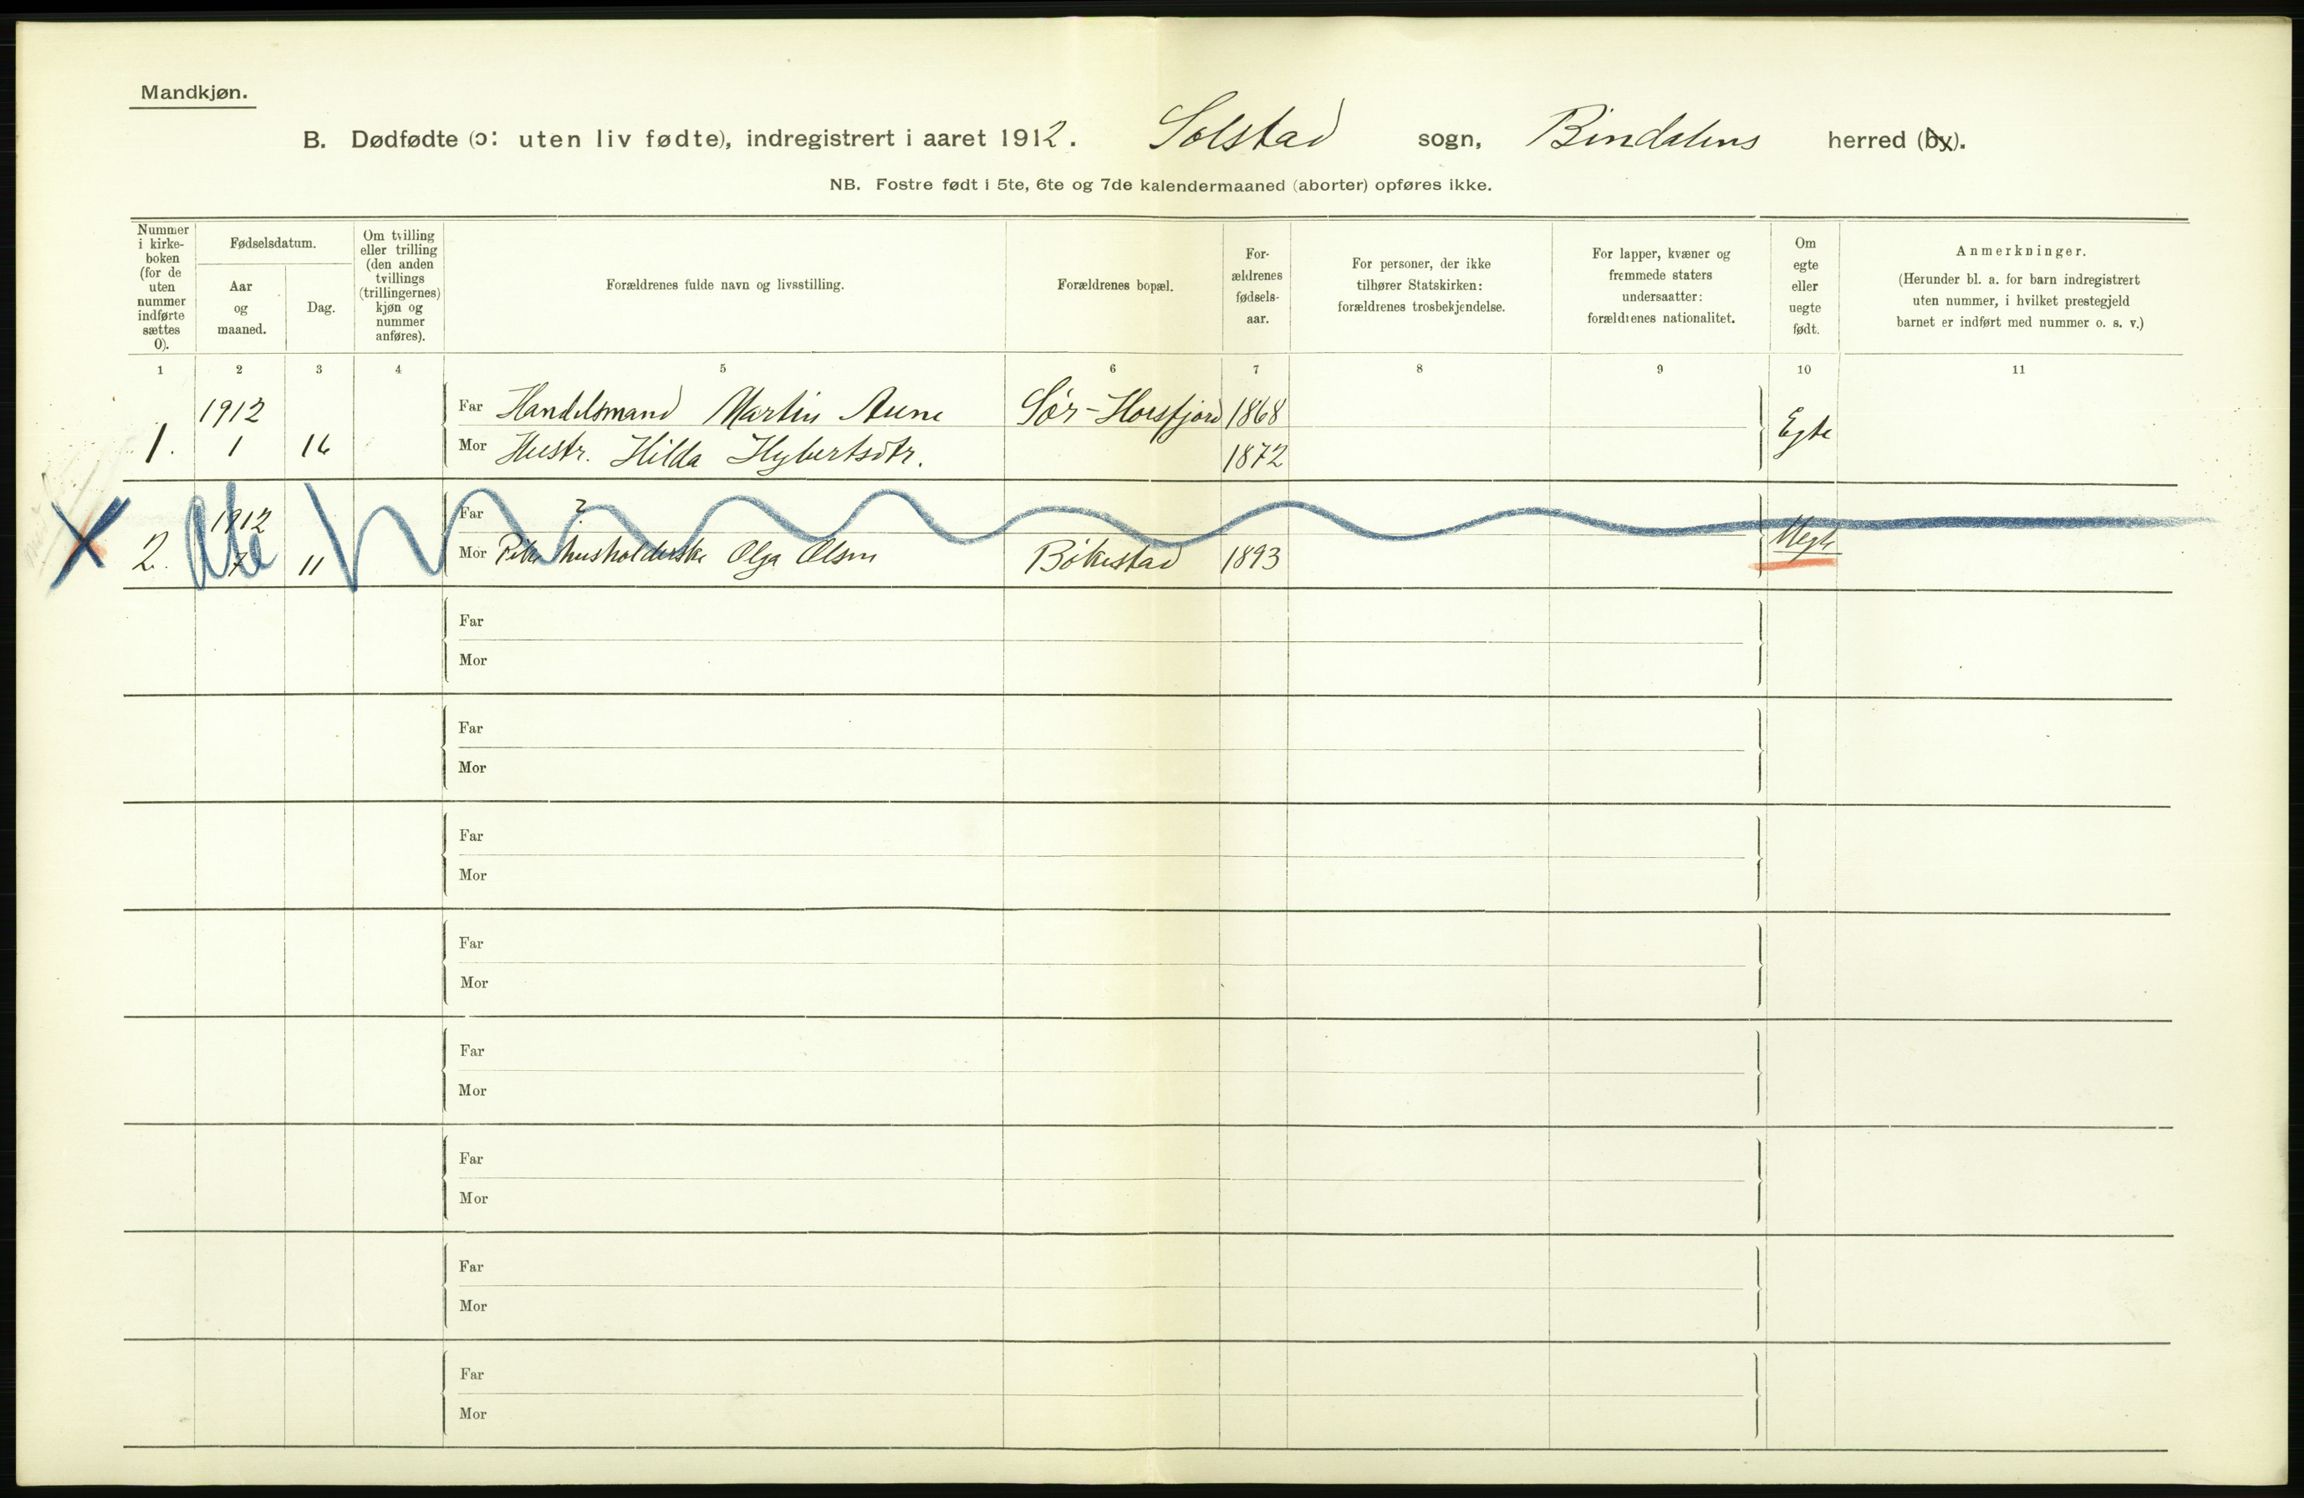 Mandkjøn.
B. Dødfødte (ɔ: uten liv fødte), indregistrert i aaret 1912. Solstad sogn, Bindalens herred (by).
NB. Fostre født i 5te, 6te og 7de kalendermaaned (aborter) opføres ikke.
Nummer
i kirke-
boken
(for de
uten
nummer
indførte
sættes
0).
Fødselsdatum.
Aar
og
maaned.
Dag.
Om tvilling
eller trilling
(den anden
tvillings
(trillingernes)
kjøn og
nummer
anføres).
Forældrenes fulde navn og livsstilling.
Forældrenes bopæl.
For-
ældrenes
fødsels-
aar.
For personer, der ikke
tilhører Statskirken:
forældrenes trosbekjendelse.
For lapper, kvæner og
fremmede staters
undersaatter:
forældrenes nationalitet.
Om
egte
eller
uegte
født.
Anmerkninger.
(Herunder bl. a. for barn indregistrert
uten nummer, i hvilket prestegjeld
barnet er indført med nummer o. s. v.)
1 2 3 4 5 6 7 8 9 10 11
1912 Far Handelsmand Martin Aune Sør-Horsfjord 1868
1. 1 16 Mor Hustr. Hilda Hybertsdtr. 1872 Egte
1912 Far ?
2. 7 11 Mor Pike husholderske Olga Olsen Bøkestad 1893 Uegte
Far
Mor
Far
Mor
Far
Mor
Far
Mor
Far
Mor
Far
Mor
Far
Mor
Far
Mor